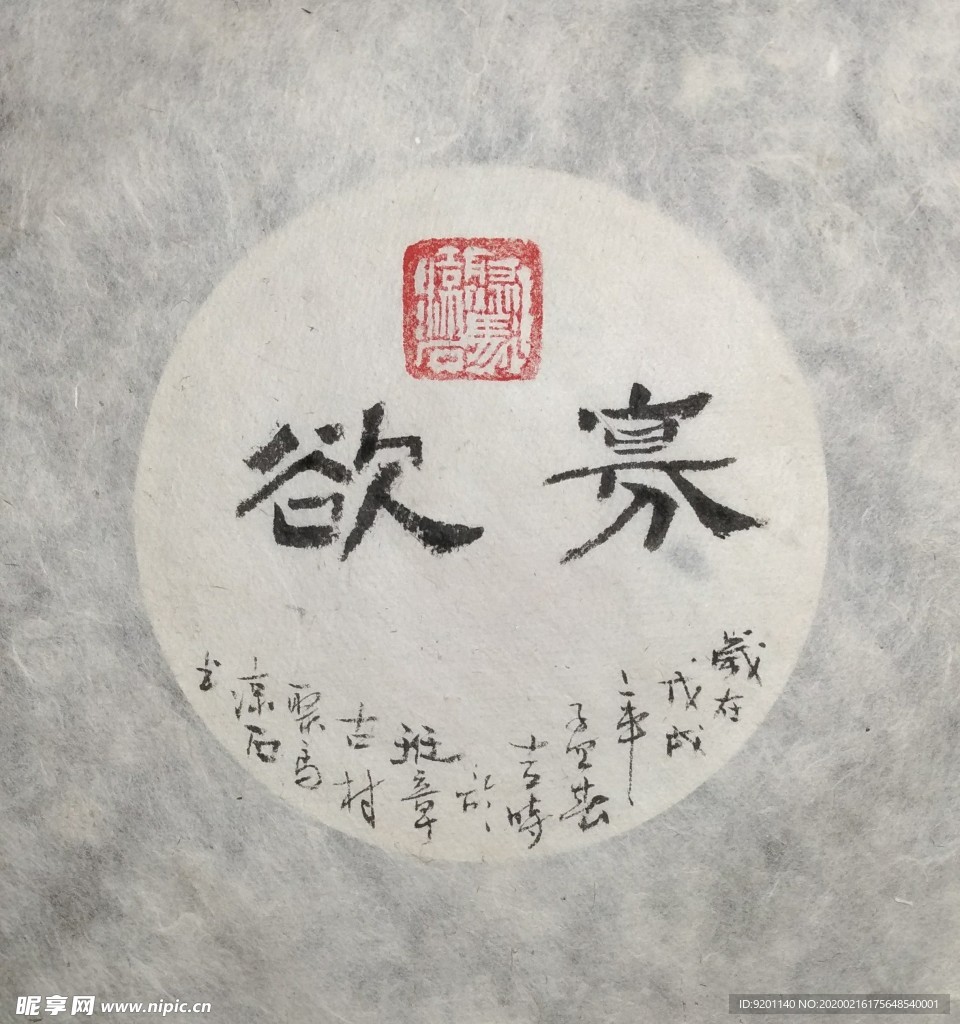 寡欲
歲在
戊戌
年
孟春
吉時
於
班章
古村
涼石
书
昵享网 www.nipic.cn
ID:9201140 NO:20200216175648540001